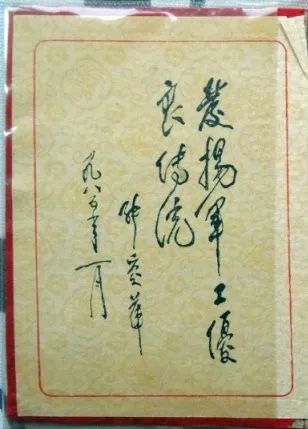 發揚軍工優
良傳統
張愛萍
一九八五年一月